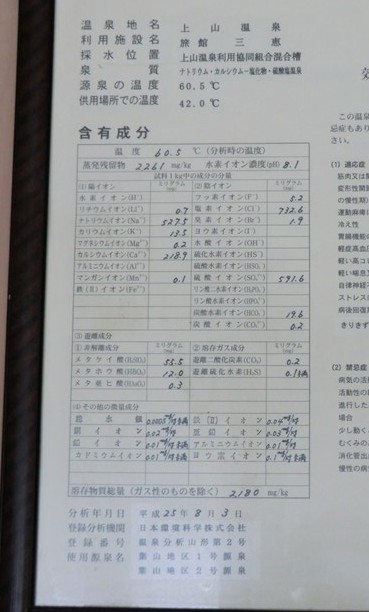 温泉地名 上山温泉
利用施設名 旅館 三恵
採水位置 上山温泉利用協同組合混合槽
泉質 ナトリウム・カルシウム−塩化物・硫酸塩温泉
源泉の温度 60.5 ℃
供用場所での温度 42.0 ℃
含有成分
温度 60.5 ℃ (分析時の温度)
蒸発残留物 2261 mg/kg 水素イオン濃度(pH) 8.1
試料1kg中の成分の分量
(1)陽イオン ミリグラム(mg) (2)陰イオン ミリグラム(mg)
水素イオン(H⁺) フッ素イオン(F⁻) 5.2
リチウムイオン(Li⁺) 0.7 塩素イオン(Cl⁻) 732.6
ナトリウムイオン(Na⁺) 527.5 臭素イオン(Br⁻) 1.9
カリウムイオン(K⁺) 13.5 ヨウ素イオン(I⁻)
マグネシウムイオン(Mg²⁺) 0.2 水酸イオン(OH⁻)
カルシウムイオン(Ca²⁺) 218.9 硫化水素イオン(HS⁻)
アルミニウムイオン(Al³⁺) 硫酸水素イオン(HSO₄⁻)
マンガンイオン(Mn²⁺) 0.1 硫酸イオン(SO₄²⁻) 591.6
鉄(Ⅱ)イオン(Fe²⁺) リン酸二水素イオン(H₂PO₄⁻)
リン酸水素イオン(HPO₄²⁻)
炭酸水素イオン(HCO₃⁻) 19.6
炭酸イオン(CO₃²⁻) 0.2
(3)遊離成分
①非解離成分 ミリグラム(mg) ②溶存ガス成分 ミリグラム(mg)
メタケイ酸(H₂SiO₃) 55.5 遊離二酸化炭素(CO₂) 0.2
メタホウ酸(HBO₂) 12.0 遊離硫化水素(H₂S) 0.1未満
メタ亜ヒ酸(HAsO₂) 0.3
(4)その他の微量成分
総水銀 0.0005mg/kg未満 鉄(Ⅱ)イオン 0.04mg/kg
銅イオン 0.02mg/kg 亜鉛イオン 0.03mg/kg
鉛イオン 0.01mg/kg未満 アルミニウムイオン 0.1mg/kg未満
カドミウムイオン 0.01mg/kg未満 ヨウ素イオン 0.1mg/kg未満
溶存物質総量(ガス性のものを除く) 2180 mg/kg
分析年月日 平成25年8月3日
登録分析機関 日本環境科学株式会社
登録番号 鉱泉分析山形第2号
使用源泉名 葉山地区1号源泉
葉山地区2号源泉
この温泉
(1) 適応症
筋肉又は
変形性関節
の慢性期)
運動麻痺
冷え性
胃腸機能の
軽症高血圧
軽い高コ
軽い喘息
自律神経
ストレス
病後回復
きりきず
(2) 禁忌症
病気の活
活動性の
進行した
場合
少し動く
むくみの
消化管出
慢性の病